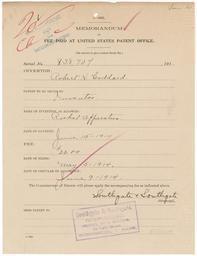 MEMORANDUM
OF
FEE PAID AT UNITED STATES PATENT OFFICE.
Serial No. 838,707 191
INVENTOR:
Robert H. Goddard
PATENT TO BE ISSUED TO
Inventor
NAME OF INVENTION, AS ALLOWED:
Rocket Apparatus
DATE OF PAYMENT:
June 15-1914
FEE:
$20.00
DATE OF FILING:
May 15-1914
June 9-1914
The Commissioner of Patents will please apply the accompanying fee as indicated above.
Southgate & Southgate
Attorney.
SEND PATENT TO
Southgate & Southgate